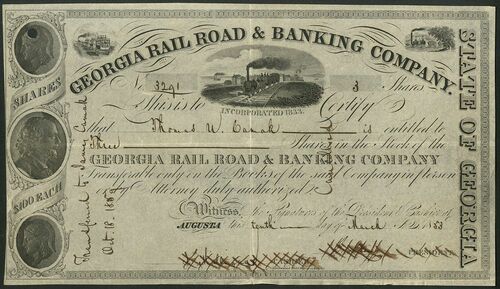 GEORGIA RAIL ROAD & BANKING COMPANY.
No. 3291
3 Shares
INCORPORATED 1833.
This is to Certify
that Thomas W. is entitled to
Three Shares in the Stock of the
GEORGIA RAIL ROAD & BANKING COMPANY
Transferable only on the Books of the said Company in person
or by Attorney duly authorized
Witness, the Signatures of the President & Cashier at
AUGUSTA this tenth day of March 1853
PRESIDENT
SHARES
$100 EACH
STATE OF GEORGIA
Transferred to
Oct. 18
Cancelled